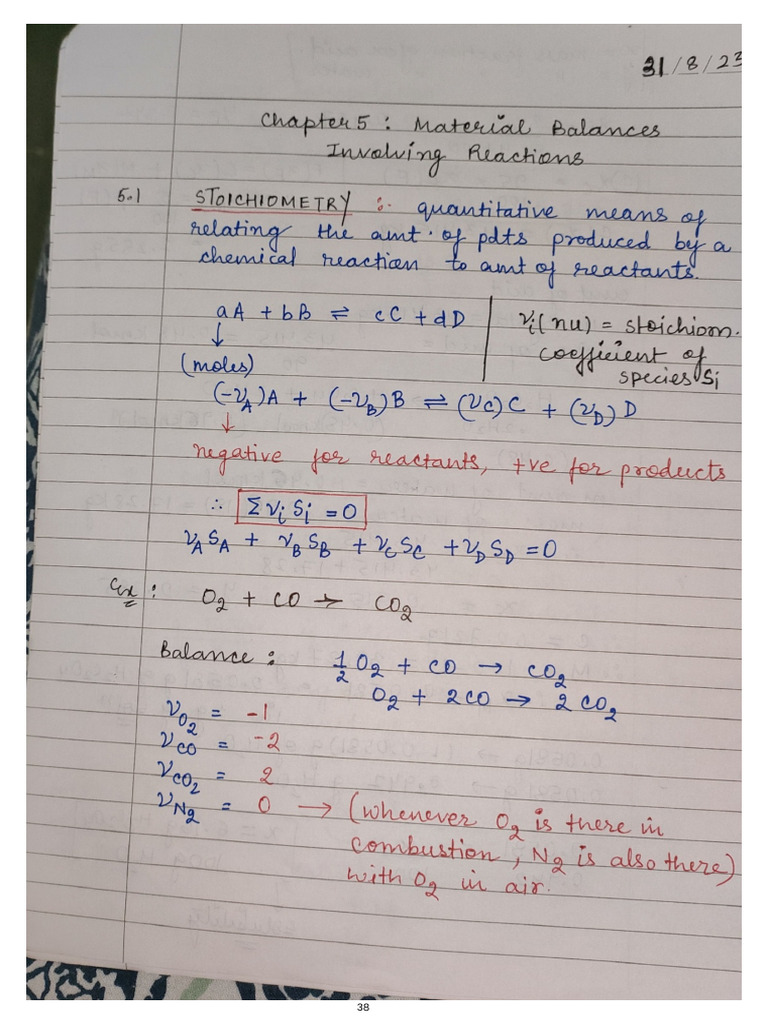 31/8/23
Chapter 5 : Material Balances
Involving Reactions
5.1 STOICHIOMETRY :- quantitative means of
relating the amt. of pdts produced by a
chemical reaction to amt of reactants.
aA + bB ⇌ cC + dD
↓
(moles)
νi (nu) = stoichiom.
coefficient of
species Si
(-νA)A + (-νB)B ⇌ (νC)C + (νD)D
↓
negative for reactants, +ve for products
∴ Σνi Si = 0
νASA + νBSB + νCSC + νDSD = 0
Ex : O2 + CO → CO2
Balance : 1/2 O2 + CO → CO2
O2 + 2CO → 2CO2
νO2 = -1
νCO = -2
νCO2 = 2
νN2 = 0 → (whenever O2 is there in
combustion, N2 is also there)
with O2 in air.
38